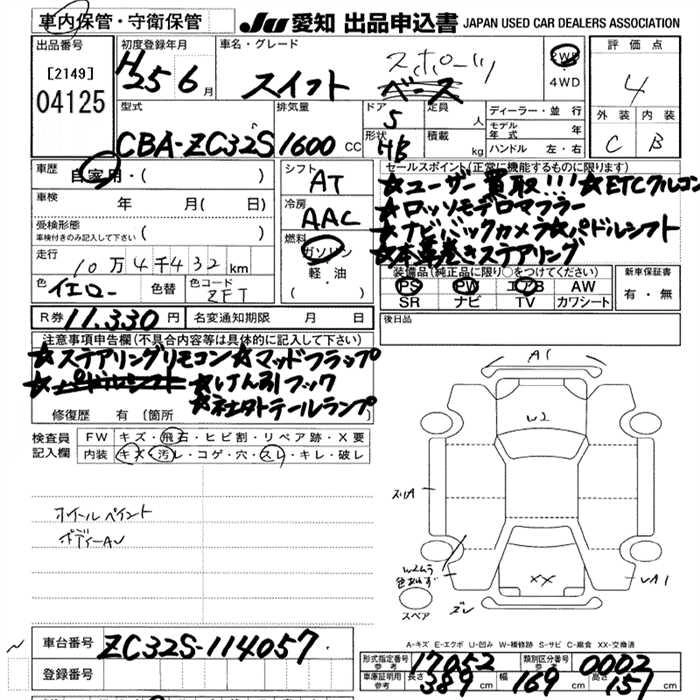 車内保管・守衛保管
JU 愛知 出品申込書 JAPAN USED CAR DEALERS ASSOCIATION
出品番号 初度登録年月 車名・グレード 評価点
[2149]
04125
H25 6月
スイフト
スポーツ
ベース
2WD
4WD
4
型式 排気量 ドア 定員 人 ディーラー・並行
外装 内装
CBA-ZC32S 1600 CC 5
モデル年式 年
形状 HB 積載 kg ハンドル 左・右
C B
車歴 自家用・( )
シフト AT
セールスポイント(正常に機能するものに限ります)
★ユーザー買取!!!★ETCクルコン
★ロッソモデロマフラー
★ナビバックカメラ★パドルシフト
★本革巻きステアリング
車検 年 月( 日)
冷房 AAC
受検形態
車検付きのみ記入して下さい ( )
燃料 ガソリン
軽・油
・( )
走行 10万4千432km
色 イエロー 色替 色コード ZFT
装備品(純正品に限り○をつけてください) 新車保証書
PS PW エアB AW
SR ナビ TV カワシート
有・無
R券 11.330 円 名変通知期限 月 日
後日品
注意事項申告欄(不具合内容等は具体的に記入して下さい)
★ステアリングリモコン★マッドフラップ
★パドルシフト ★けん引フック
★社外テールランプ
修復歴 有(箇所
検査員記入欄 FW キズ・飛石・ヒビ割・リペア跡・X要
内装 キズ・汚レ・コゲ・穴・スレ・キレ・破レ
ホイールペイント
ボディーAU
A1
U2
XX
UA1
ズレ
スペア
A-キズ E-エクボ U-凹み W-補修跡 S-サビ C-腐食 XX-交換済
車台番号 ZC32S-114057
登録番号
形式指定番号 参考 17052 類別区分番号 参考 0002
車庫証明用 参考 長さ 389 cm 幅 169 cm 高さ 151 cm